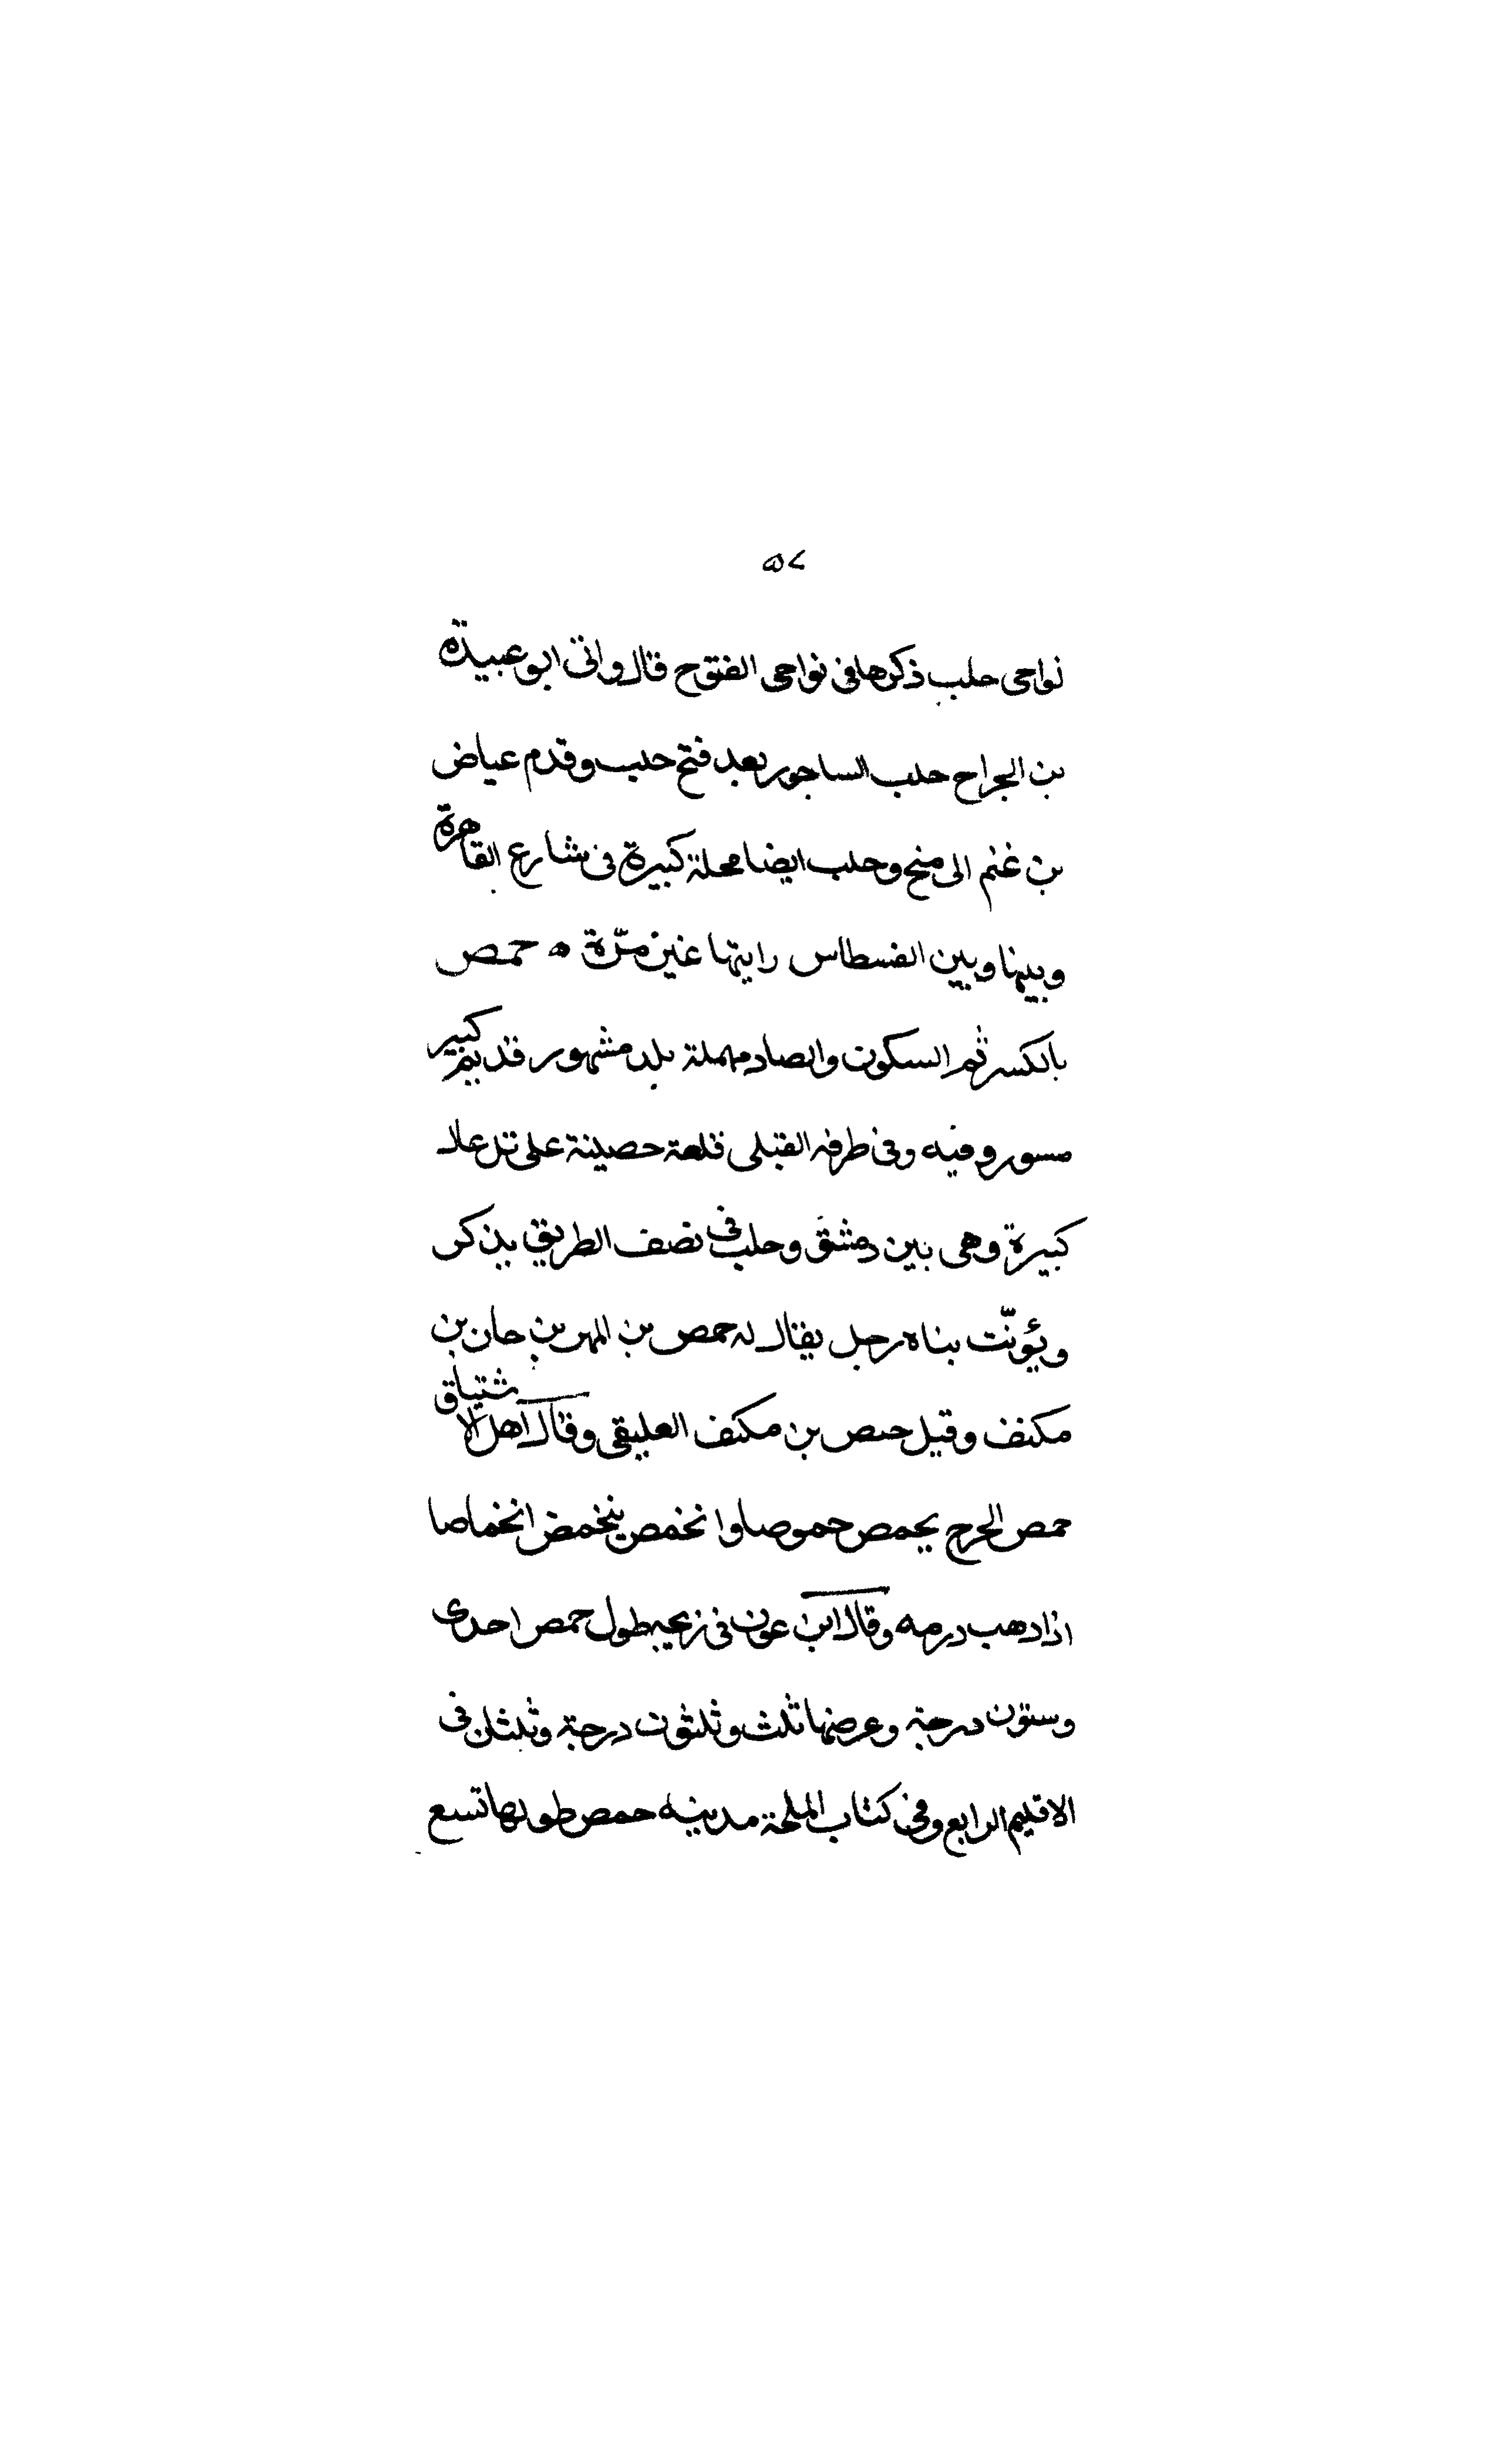 ٥٧
نواحى حلب ذكرها فى نواحى الفتوح قال واتى ابو عبيدة
بن الجراح حلب الساجور بعد فتح حلب وقدم عياض
بن غنم الى منبج وحلب ايضا محلة كبيرة فى شارع القاهرة
وبينها وبين الفسطاس رايتها غير مرّة ه حمص
بالكسر ثم السكون والصاد مهملة بلد مشهور قديم كبير
مسور وفيه وفى طرفه القبلى قلعة حصينة على تل علا
كبيرة وهى بين دمشق وحلب فى نصف الطريق يذكر
ويؤنّث بناه رجل يقال له حمص بن المهر بن جان بن
مكنف وقيل حمص بن مكنف العليقى وقال اهل الاشتياق
حمص الجرح يحمص حموصا وانحمص ينخمض انخماصا
اذا دهب درمه وقال ابن عون فى زيجه طول حمص احدى
وستون درجة وعرضها ثلث وثلثون درجة وثلثان فى
الاقليم الرابع وفى كتاب الملحة مدينه حمص طولها تسع